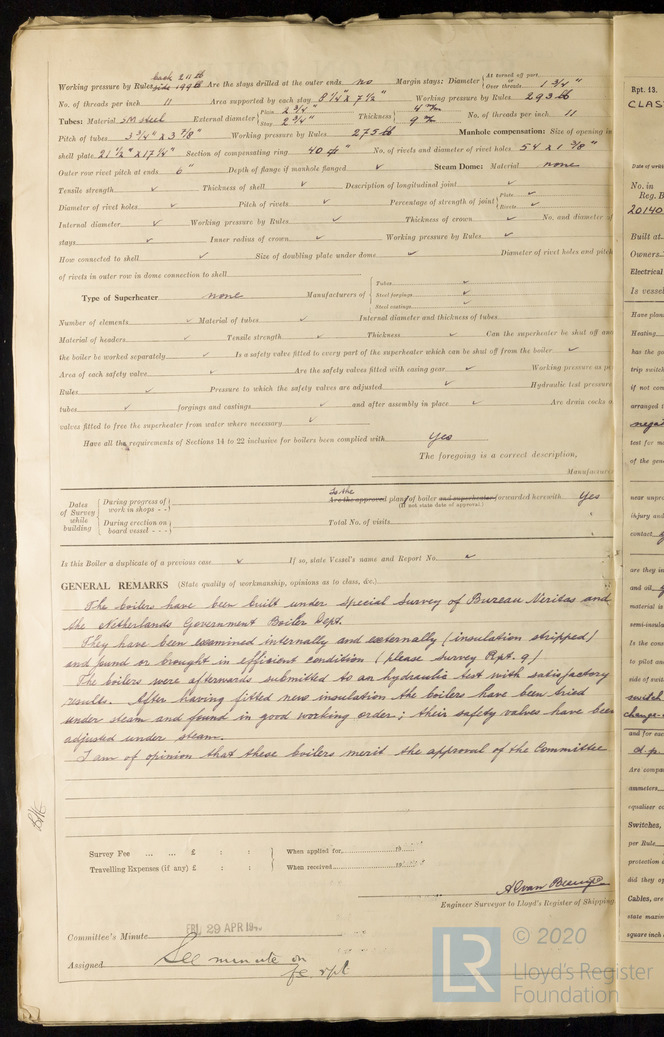 back 211 lb
Working pressure by Rules side 199 lb Are the stays drilled at the outer ends no Margin stays: Diameter { At turned off part, or Over threads 1 3/4"
No. of threads per inch 11 Area supported by each stay 8 1/4" x 7 1/2" Working pressure by Rules 293 lb
Tubes: Material SM steel External diameter { Plain 2 3/4" Stay 2 3/4" Thickness { 4 m/m 9 m/m No. of threads per inch 11
Pitch of tubes 3 3/4" x 3 7/8" Working pressure by Rules 275 lb Manhole compensation: Size of opening in
shell plate 21 1/2" x 17 1/4" Section of compensating ring 40 No. of rivets and diameter of rivet holes 54 x 1 3/8"
Outer row rivet pitch at ends 6" Depth of flange if manhole flanged ✓ Steam Dome: Material none
Tensile strength ✓ Thickness of shell ✓ Description of longitudinal joint ✓
Diameter of rivet holes ✓ Pitch of rivets ✓ Percentage of strength of joint { Plate ✓ Rivets ✓
Internal diameter ✓ Working pressure by Rules ✓ Thickness of crown ✓ No. and diameter of
stays ✓ Inner radius of crown ✓ Working pressure by Rules ✓
How connected to shell ✓ Size of doubling plate under dome ✓ Diameter of rivet holes and pitch
of rivets in outer row in dome connection to shell
Type of Superheater none Manufacturers of { Tubes ✓ Steel forgings ✓ Steel castings ✓
Number of elements ✓ Material of tubes ✓ Internal diameter and thickness of tubes
Material of headers ✓ Tensile strength ✓ Thickness ✓ Can the superheater be shut off and
the boiler be worked separately ✓ Is a safety valve fitted to every part of the superheater which can be shut off from the boiler ✓
Area of each safety valve ✓ Are the safety valves fitted with easing gear ✓ Working pressure as per
Rules ✓ Pressure to which the safety valves are adjusted ✓ Hydraulic test pressure
tubes ✓ forgings and castings ✓ and after assembly in place ✓ Are drain cocks or
valves fitted to free the superheater from water where necessary ✓
Have all the requirements of Sections 14 to 22 inclusive for boilers been complied with yes
The foregoing is a correct description,
Manufacturer
Dates of Survey while building { During progress of work in shops - - { During erection on board vessel - - -
Is the
Are the approved plan of boiler and superheater forwarded herewith Yes
(If not state date of approval.)
Total No. of visits
Is this Boiler a duplicate of a previous case ✓ If so, state Vessel's name and Report No. ✓
GENERAL REMARKS (State quality of workmanship, opinions as to class, &c.)
The boilers have been built under Special Survey of Bureau Veritas and
the Netherlands Government Boiler Dept.
They have been examined internally and externally (insulation stripped)
and found or brought in efficient condition (please survey Rpt. 9)
The boilers were afterwards submitted to an hydraulic test with satisfactory
results. After having fitted new insulation the boilers have been tried
under steam and found in good working order; their safety valves have been
adjusted under steam.
I am of opinion that these boilers merit the approval of the Committee
Survey Fee ... ... £ : : When applied for, 19
Travelling Expenses (if any) £ : : When received 19
Engineer Surveyor to Lloyd's Register of Shipping
Committee's Minute FRI 29 APR 19
Assigned See minute on
fe. rpt
Rpt. 13.
CLAS
Date of writ
No. in
Reg. B
20140
Built at
Owners
Electrical
Is vessel
Have plan
Heating
has the po
trip switch
if not com
arranged t
negat
test for mo
of the gene
near unpro
injury and
contact
are they in
and oil
material is
semi-insula
Is the cons
to pilot an
side of exit
switch
change-
and for eac
d.p.
Are compas
ammeters
equaliser co
Switches,
per Rule
protection
did they op
Cables, are
state maxim
square inch
LR © 2020
Lloyd's Register
Foundation